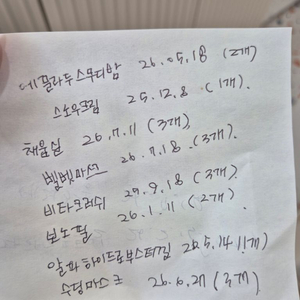 에플라두스무디밤 26.05.18 (2개)
스노우크림 25.12.8 (1개).
채움실 26.7.11 (3개)
벨벳마스크 26.7.18 (3개).
비타크러쉬 29.9.18 (3개).
보노필 26.1.11 (2개)
알파하이드로부스터겔 26.5.14 (1개)
수딩마스크 26.6.27 (3개)